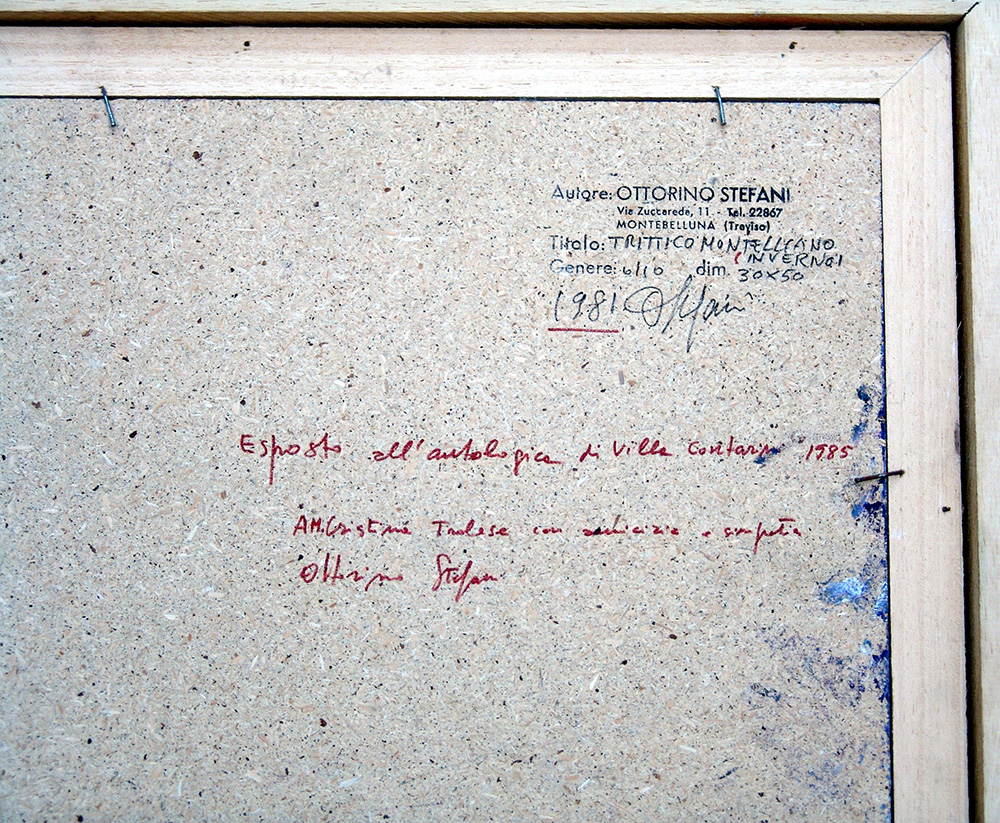 Autore: OTTORINO STEFANI
Via Zuccareda, 11 - Tel. 22867
MONTEBELLUNA (Treviso)
Titolo: TRITTICO MONTELLIANO
(INVERNO)
Genere: olio dim. 30x50
1981 OStefani
Esposto all'antologica di Villa Contarini 1985
A M. Cristina Trolese con amicizia e simpatia
Ottorino Stefani